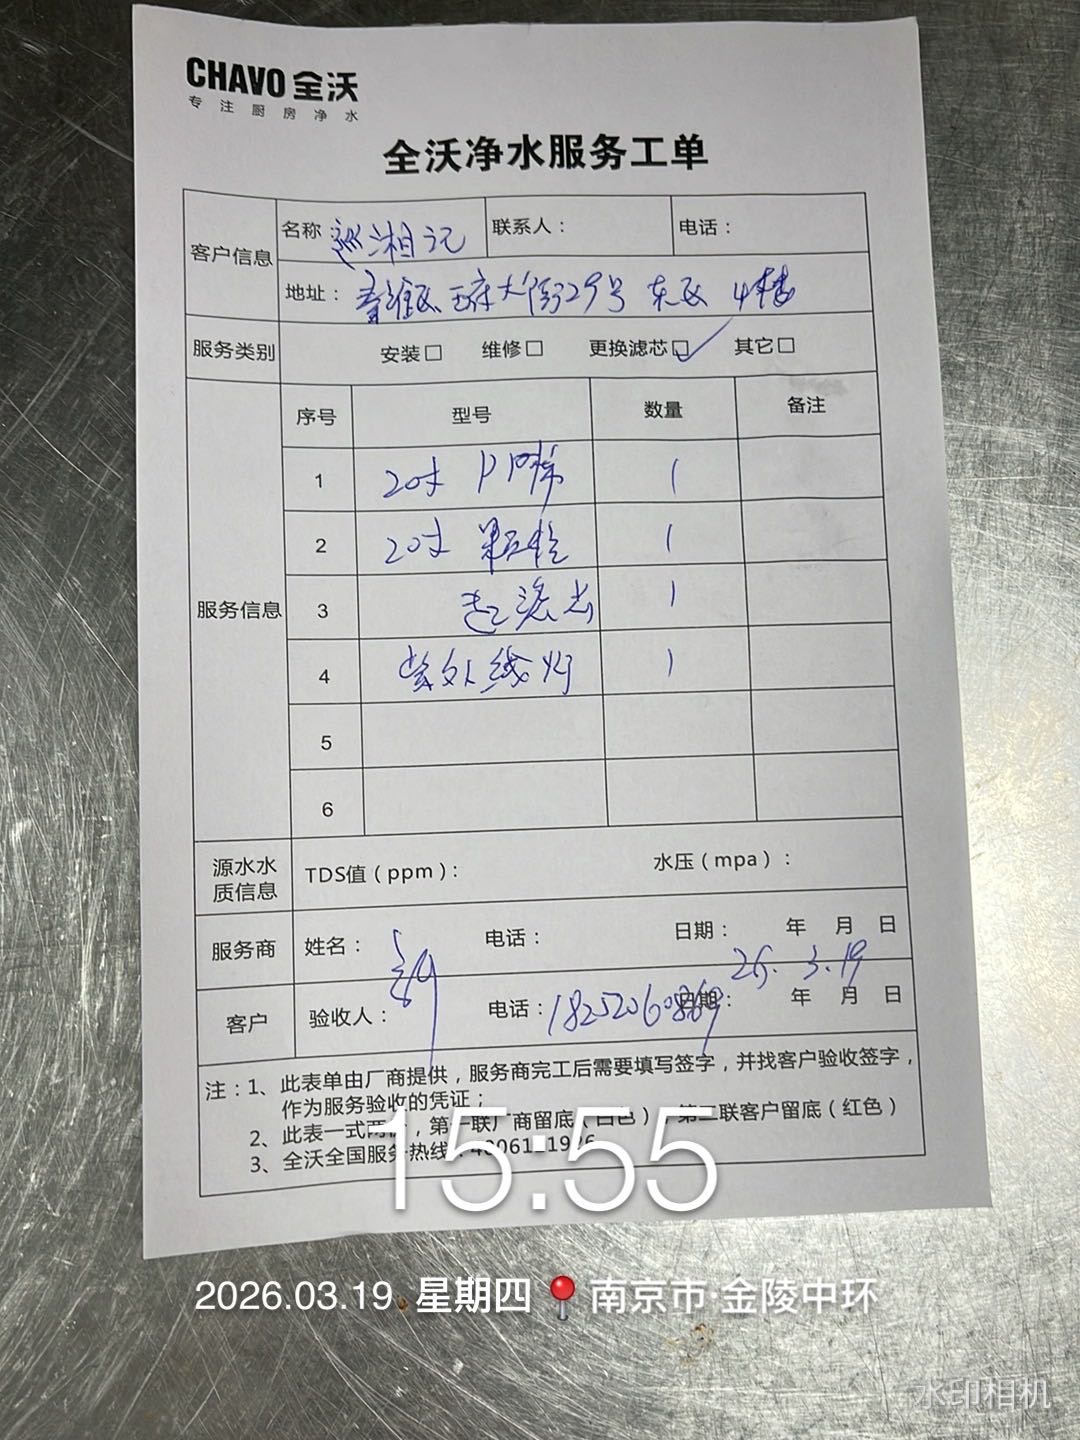 CHAVO 全沃
专注厨房净水
全沃净水服务工单
客户信息
名称 湘记
联系人：
电话：
地址： 秦淮区王府大街29号 东区 4楼
服务类别
安装□ 维修□ 更换滤芯☑ 其它□
服务信息
序号 型号 数量 备注
1 20寸 PP棉 1
2 20寸 颗粒 1
3 超滤 1
4 紫外线灯 1
5
6
源水水质信息
TDS值（ppm）： 水压（mpa）：
服务商
姓名： 电话： 日期： 年 月 日
26. 3. 19
客户
验收人： 电话：18252060869 日期： 年 月 日
注：1、此表单由厂商提供，服务商完工后需要填写签字，并找客户验收签字，
作为服务验收的凭证；
2、此表一式两，第一联厂商留底（白色），第二联客户留底（红色）
3、全沃全国服务热线
15:55
2026.03.19 星期四 📍南京市·金陵中环
水印相机